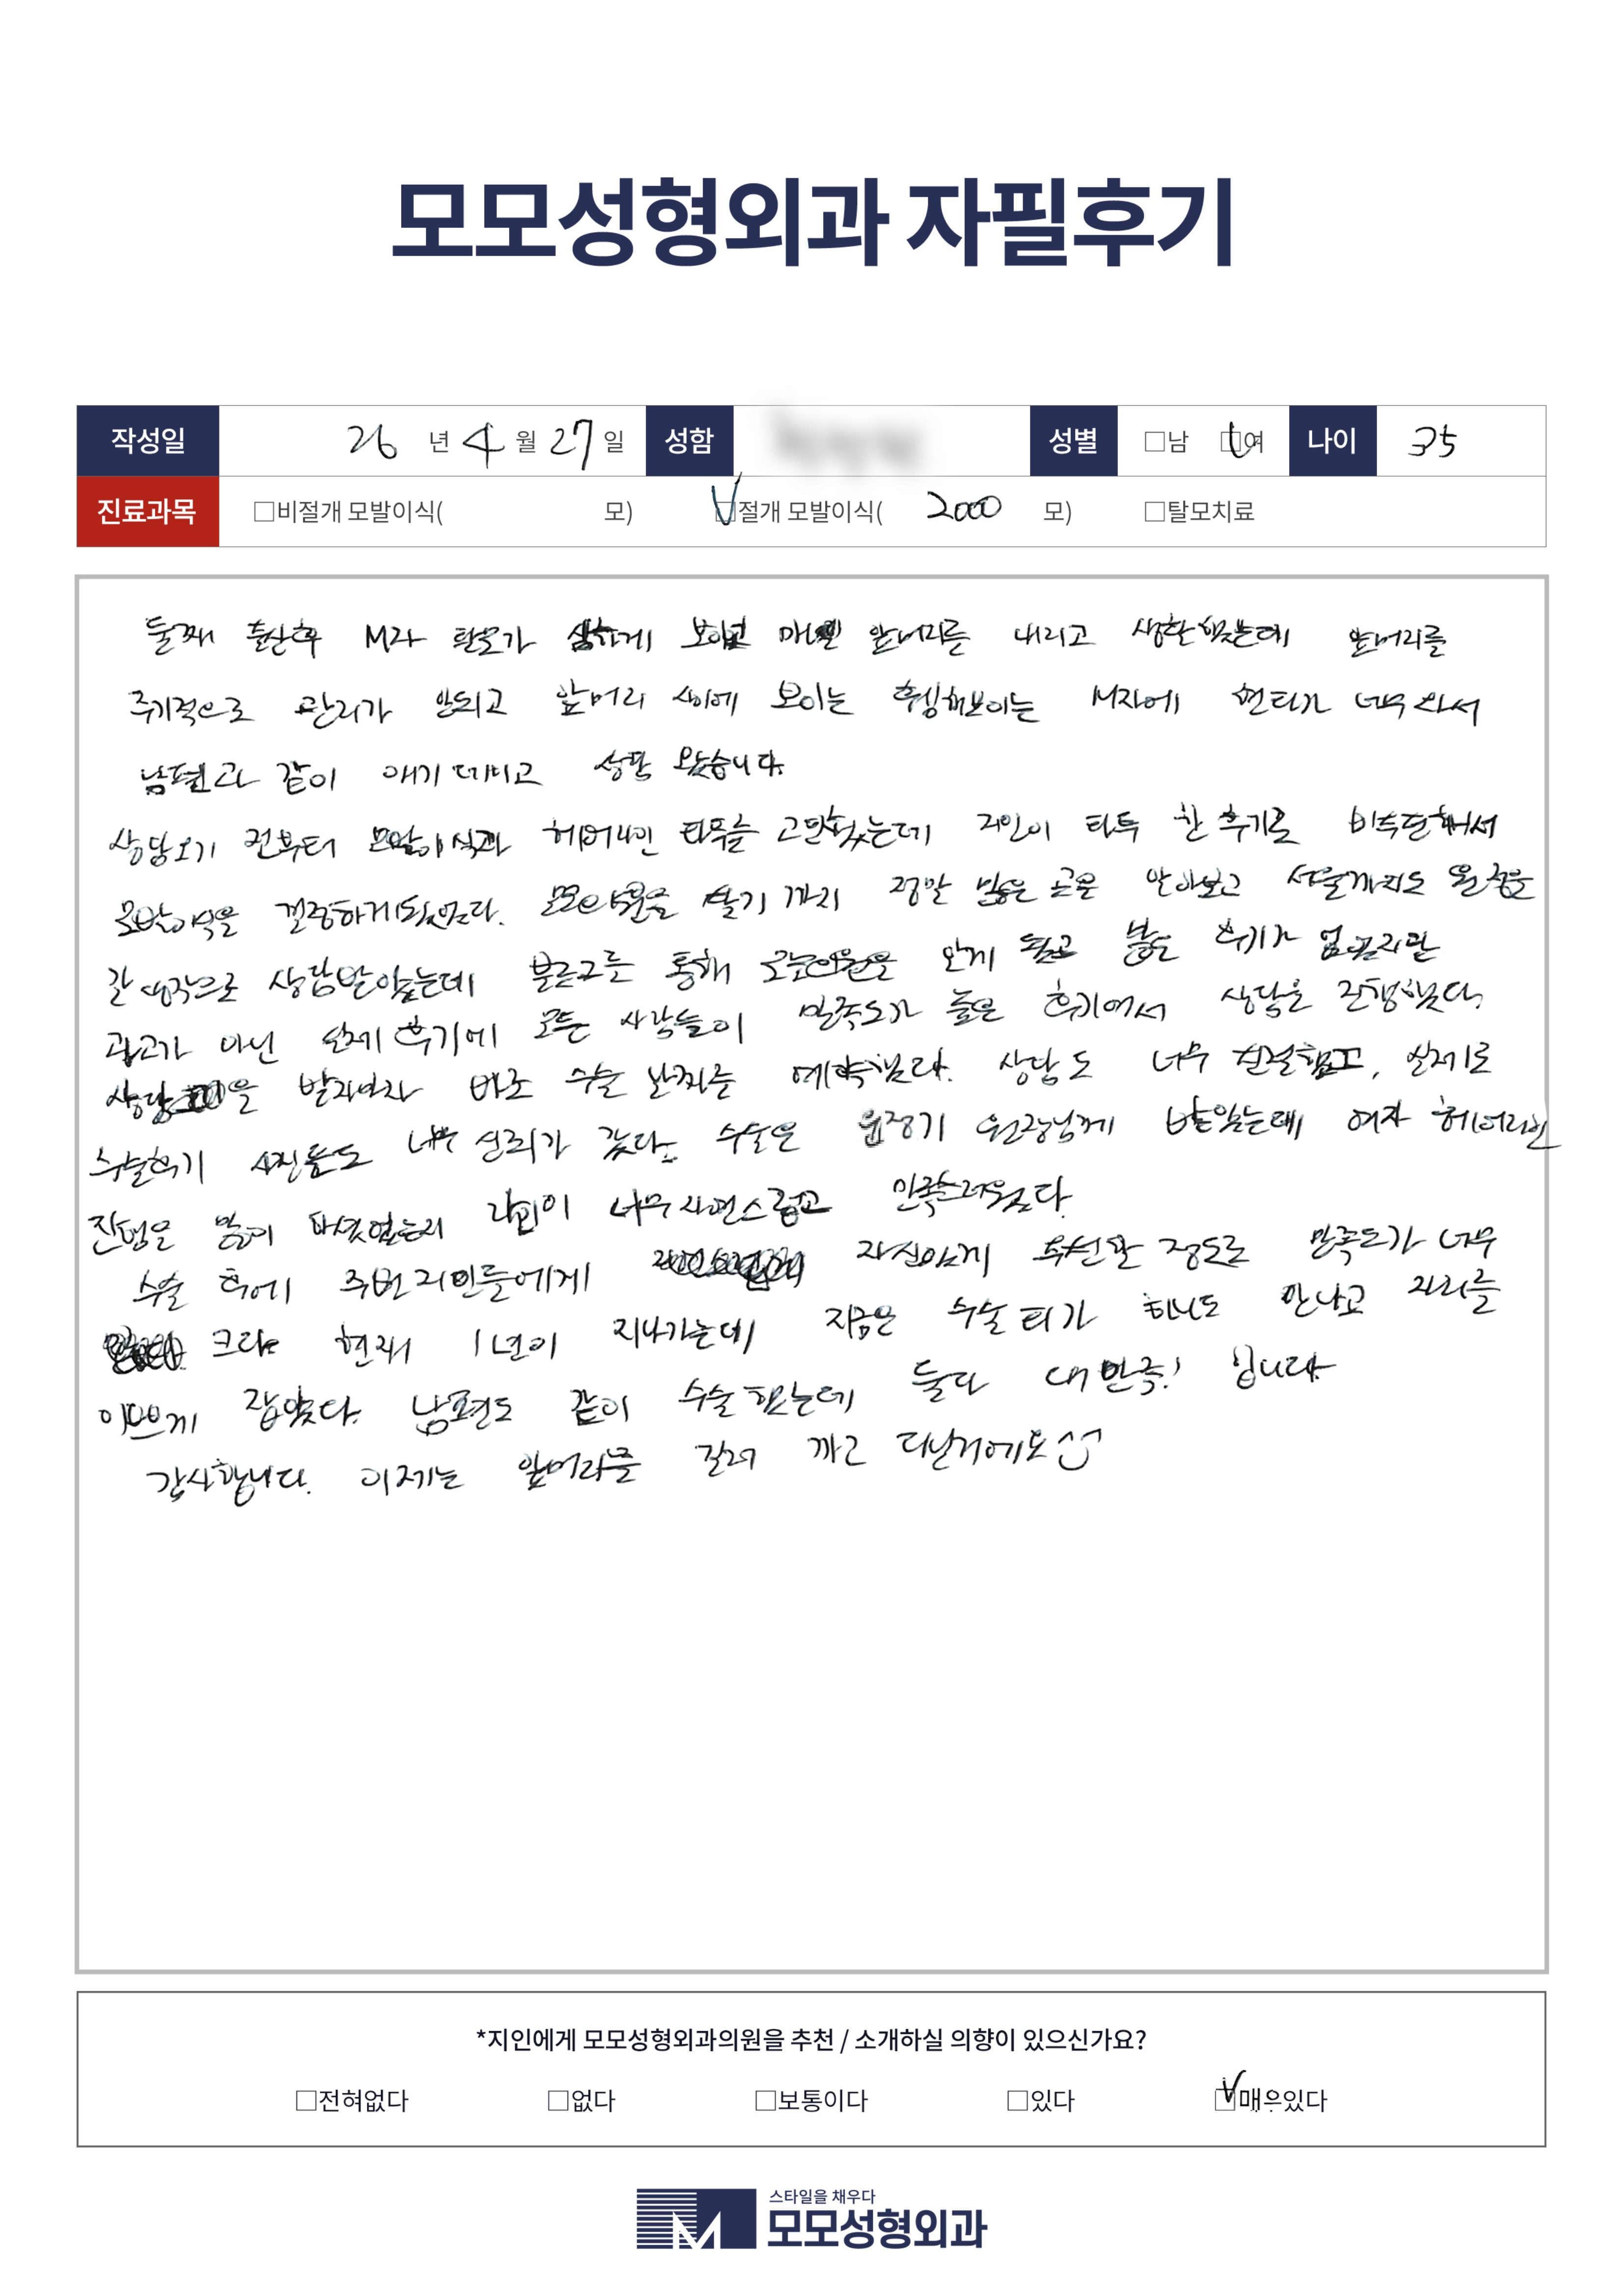 모모성형외과 자필후기
작성일 26 년 4 월 27 일 성함 성별 □남 □여 나이 35
진료과목 □비절개 모발이식( 모) □절개 모발이식( 2000 모) □탈모치료
둘째 출산후 M자 탈모가 심하게 보이고 매일 앞머리를 내리고 생활했는데 앞머리를
주기적으로 관리가 안되고 앞머리 사이에 보이는 휑해보이는 M자에 현타가 너무 와서
남편과 같이 애기 데리고 상담 왔습니다.
상담오기 전부터 모발이식과 헤어라인 타투를 고민했는데 지인이 타투 한 후기로 비추천해서
모발이식을 결정하게되었다. 모모의원을 찾기 까지 정말 많은 곳을 알아보고 서울까지도 원정을
갈 생각으로 상담많이했는데 블로그를 통해 모모의원을 알게 됐고 많은 후기가 있지만
광고가 아닌 실제 후기에 모든 사람들이 만족도가 높은 후기여서 상담을 진행했다.
상담을 받자마자 바로 수술 날짜를 예약했다. 상담도 너무 친절했고, 실제로
수술후기 사진들도 너무 신뢰가 갔다. 수술은 윤정기 원장님께 받았는데 여자 헤어라인
진행을 많이 하셨었는지 라인이 너무 자연스럽고 만족스러웠다.
수술 후에 주변 지인들에게 자신있게 추천할 정도로 만족도가 너무
크다. 현재 1년이 지나가는데 지금은 수술 티가 하나도 안나고 자리를
이쁘게 잡았다. 남편도 같이 수술 했는데 둘다 대만족! 입니다.
감사합니다. 이제는 앞머리를 길러 까고 다닐거에요
*지인에게 모모성형외과의원을 추천 / 소개하실 의향이 있으신가요?
□전혀없다 □없다 □보통이다 □있다 □매우있다
스타일을 채우다
모모성형외과